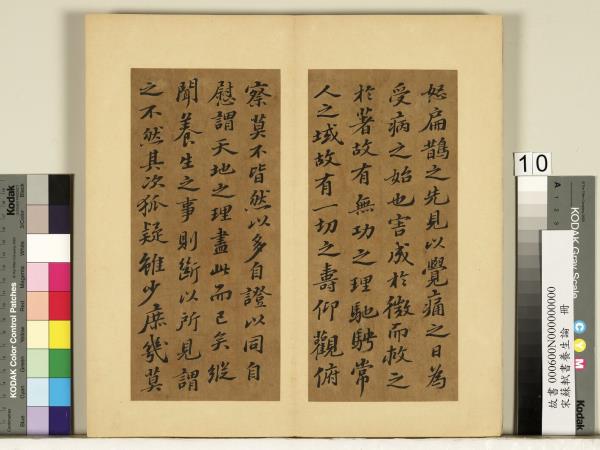 怒扁鵲之先見以覺痛之日為
受病之始也害成於微而救之
於著故有無功之理馳騁常
人之域故有一切之壽仰觀俯
察莫不皆然以多自證以同自
慰謂天地之理盡此而已矣縱
聞養生之事則斷以所見謂
之不然其次狐疑雖少庶幾莫
10
KODAK Gray Scale
C Y M
Kodak
A 1 2 3
故書 000600N000000000
宋蘇軾書養生論 冊
Kodak
KODAK Color Control Patches
Blue
Cyan
Green
Yellow
Red
Magenta
White
3/Color
Black